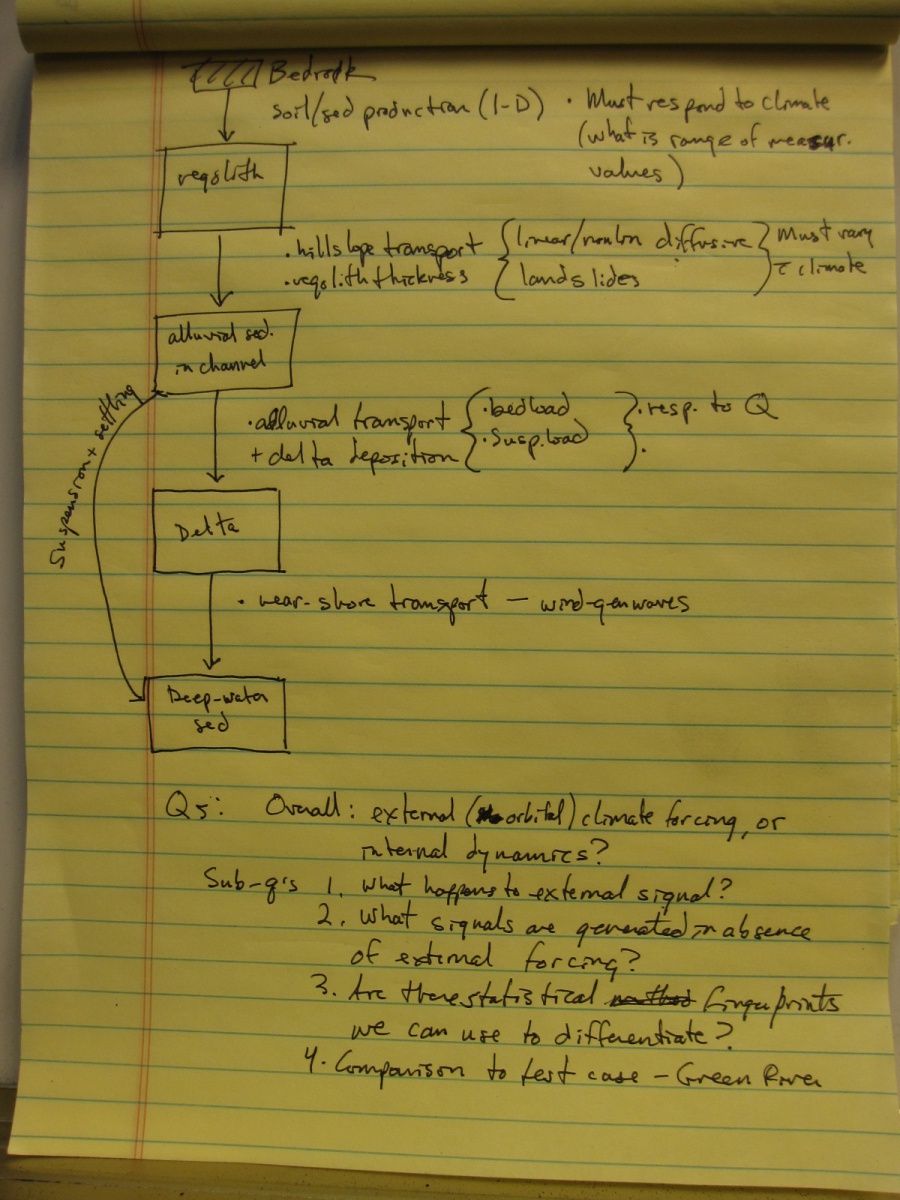 Bedrock
soil/sed production (1-D) · Must respond to climate
(what is range of measur.
values)
regolith
· hillslope transport { linear/nonlin diffusive } Must vary
· regolith thickness { landslides } c̄ climate
alluvial sed.
in channel
Suspension + settling
· alluvial transport { · bedload } · resp. to Q
+ delta deposition { · Susp. load } ·
Delta
· near-shore transport — wind-gen waves
Deep-water
sed
Qs: Overall: external (orbital) climate forcing, or
internal dynamics?
Sub-q's 1. What happens to external signal?
2. What signals are generated in absence
of external forcing?
3. Are there statistical fingerprints
we can use to differentiate?
4. Comparison to test case – Green River